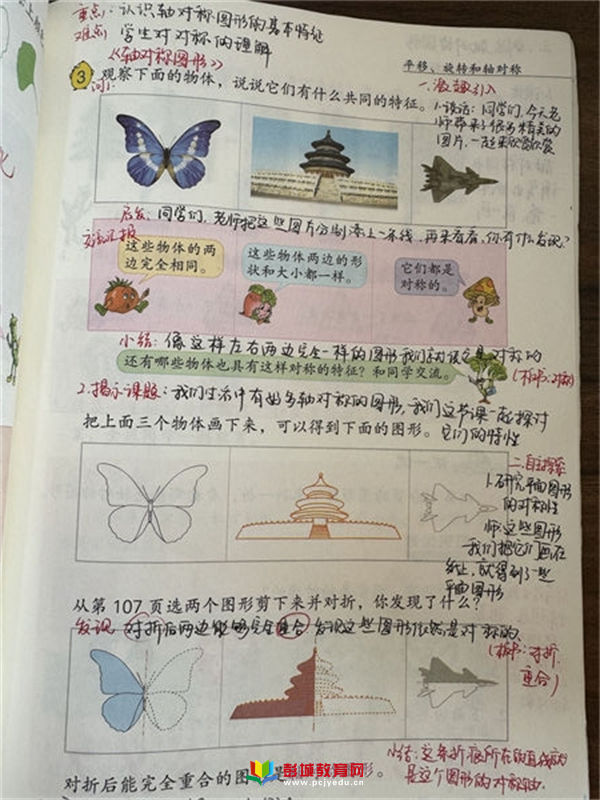 重点：认识轴对称图形的基本特征
难点：学生对对称的理解
《轴对称图形》
平移、旋转和轴对称
3 观察下面的物体，说说它们有什么共同的特征。
问1:
一、激趣引入
1.谈话：同学们，今天老
师带来了很多精美的
图片，一起来欣赏欣赏
启发：同学们，老师把这些图片分别添上一条线，再来看看，你有什么发现？
交流汇报
这些物体的两
边完全相同。
这些物体两边的形
状和大小都一样。
它们都是
对称的。
小结：像这样左右两边完全一样的图形我们就说它是对称的
（板书：对称）
还有哪些物体也具有这样对称的特征？和同学交流。
2.揭示课题：我们生活中有好多轴对称的图形，我们这节课一起探讨
它们的特性
把上面三个物体画下来，可以得到下面的图形。
二、自主探索
1.研究平面图形
的对称性
师：这些图形
我们把它们画在
纸上，就得到了一些
平面图形
从第107页选两个图形剪下来并对折，你发现了什么？
发现：对折后两边能够完全重合 发现这些图形依然是对称的
（板书：对折
重合）
小结：这条折痕所在的直线就
是这个图形的对称轴
对折后能完全重合的图
形。
彭城教育网
www.pcjyedu.cn